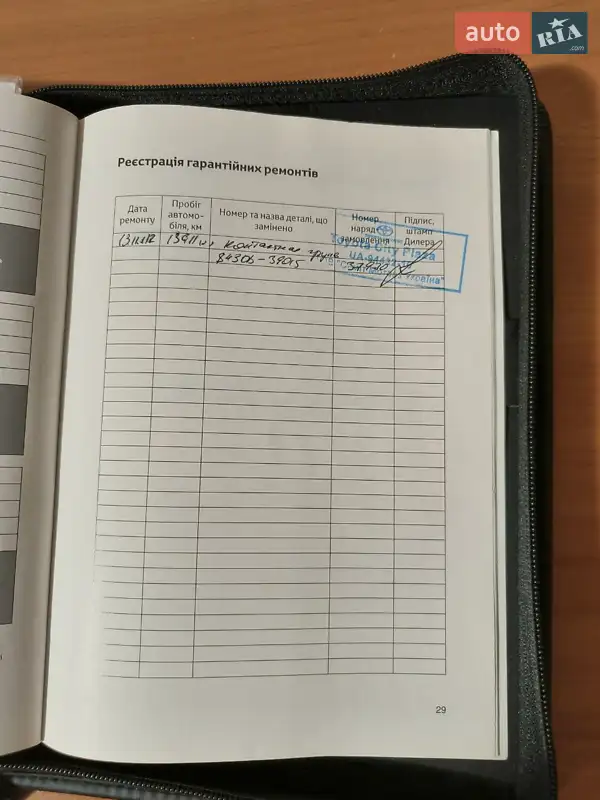 auto RIA .com
Реєстрація гарантійних ремонтів
Дата ремонту
Пробіг автомо- біля, км
Номер та назва деталі, що замінено
Номер наряд- замовлення
Підпис, штамп Дилера
контактна група
84306-
Toyota City Plaza
29